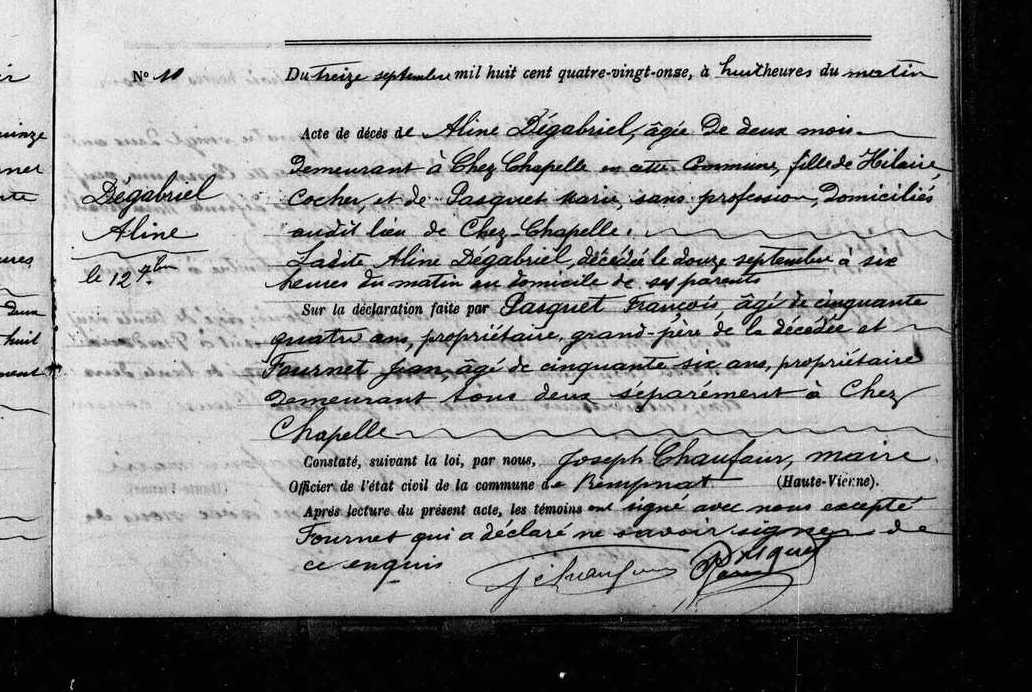 N° 10
Du treize septembre mil huit cent quatre-vingt-onze, à huit heures du matin
Dégabriel
Aline
le 12 7bre
Acte de décès de Aline Dégabriel, âgée De deux mois
Demeurant à Chez Chapelle en cette Commune, fille de Hilaire,
Cocher, et de Pasquet Marie, sans profession, Domiciliés
audit lieu de Chez-Chapelle.
Ladite Aline Degabriel, décédée le douze septembre à six
heures du matin au domicile de ses parents
Sur la déclaration faite par Pasquet François âgé de cinquante
quatre ans, propriétaire, grand-père de la décédée et
Fournet Jean, âgé de cinquante six ans, propriétaire
Demeurant tous deux séparément à Chez
Chapelle
Constaté, suivant la loi, par nous, Joseph Chaufour, maire
Officier de l'état civil de la commune de Rempnat (Haute-Vienne).
Après lecture du présent acte, les témoins ont signé avec nous excepté
Fournet qui a déclaré ne savoir signer de
ce enquis
Pasquet
inze
ures
deux
huit